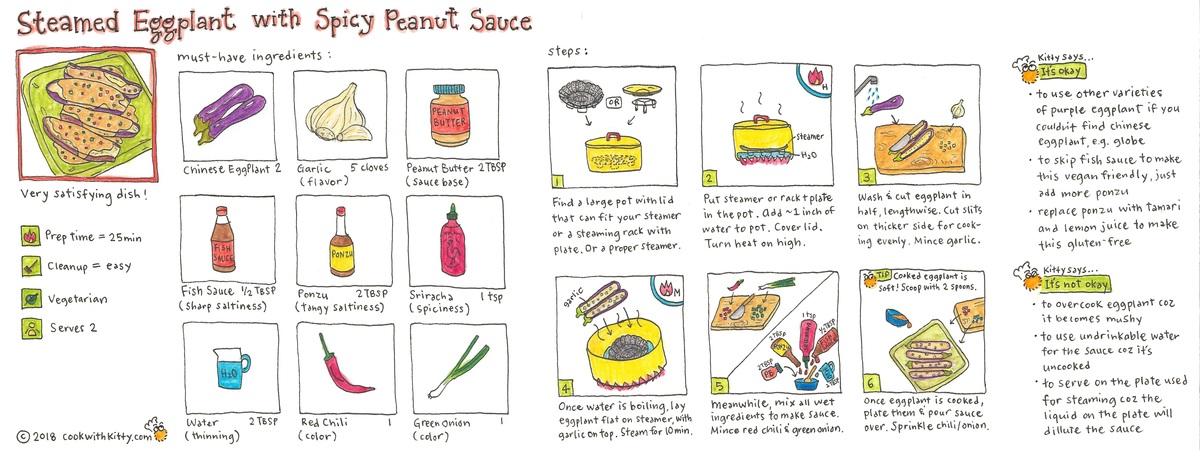 Steamed Eggplant with Spicy Peanut Sauce
Very satisfying dish!
Prep time = 25min
Cleanup = easy
Vegetarian
Serves 2
© 2018 cookwithkitty.com
must-have ingredients:
Chinese Eggplant 2
Garlic 5 cloves
(flavor)
PEANUT
BUTTER
Peanut Butter 2 TBSP
(sauce base)
FISH
SAUCE
Fish Sauce 1/2 TBSP
(sharp saltiness)
PONZU
Ponzu 2 TBSP
(tangy saltiness)
Sriracha 1 tsp
(spiciness)
H2O
Water 2 TBSP
(thinning)
Red Chili 1
(color)
Green onion 1
(color)
steps:
OR
1
Find a large pot with lid
that can fit your steamer
or a steaming rack with
plate. Or a proper steamer.
H
steamer
H2O
2
Put steamer or rack + plate
in the pot. Add ~1 inch of
water to pot. Cover lid.
Turn heat on high.
3
Wash & cut eggplant in
half, lengthwise. Cut slits
on thicker side for cook-
ing evenly. Mince garlic.
garlic
M
4
Once water is boiling, lay
eggplant flat on steamer, with
garlic on top. Steam for 10min.
1 tsp
2TBSP
PONZU
1/2 TBSP
2TBSP
PB
2TBSP
5
Meanwhile, mix all wet
ingredients to make sauce.
Mince red chili & green onion.
TIP Cooked eggplant is
soft! Scoop with 2 spoons.
6
Once eggplant is cooked,
plate them & pour sauce
over. Sprinkle chili/onion.
Kitty says...
It's okay
• to use other varieties
of purple eggplant if you
couldn't find chinese
eggplant, e.g. globe
• to skip fish sauce to make
this vegan friendly, just
add more ponzu
• replace ponzu with tamari
and lemon juice to make
this gluten-free
Kitty says...
It's not okay
• to overcook eggplant coz
it becomes mushy
• to use undrinkable water
for the sauce coz it's
uncooked
• to serve on the plate used
for steaming coz the
liquid on the plate will
dillute the sauce